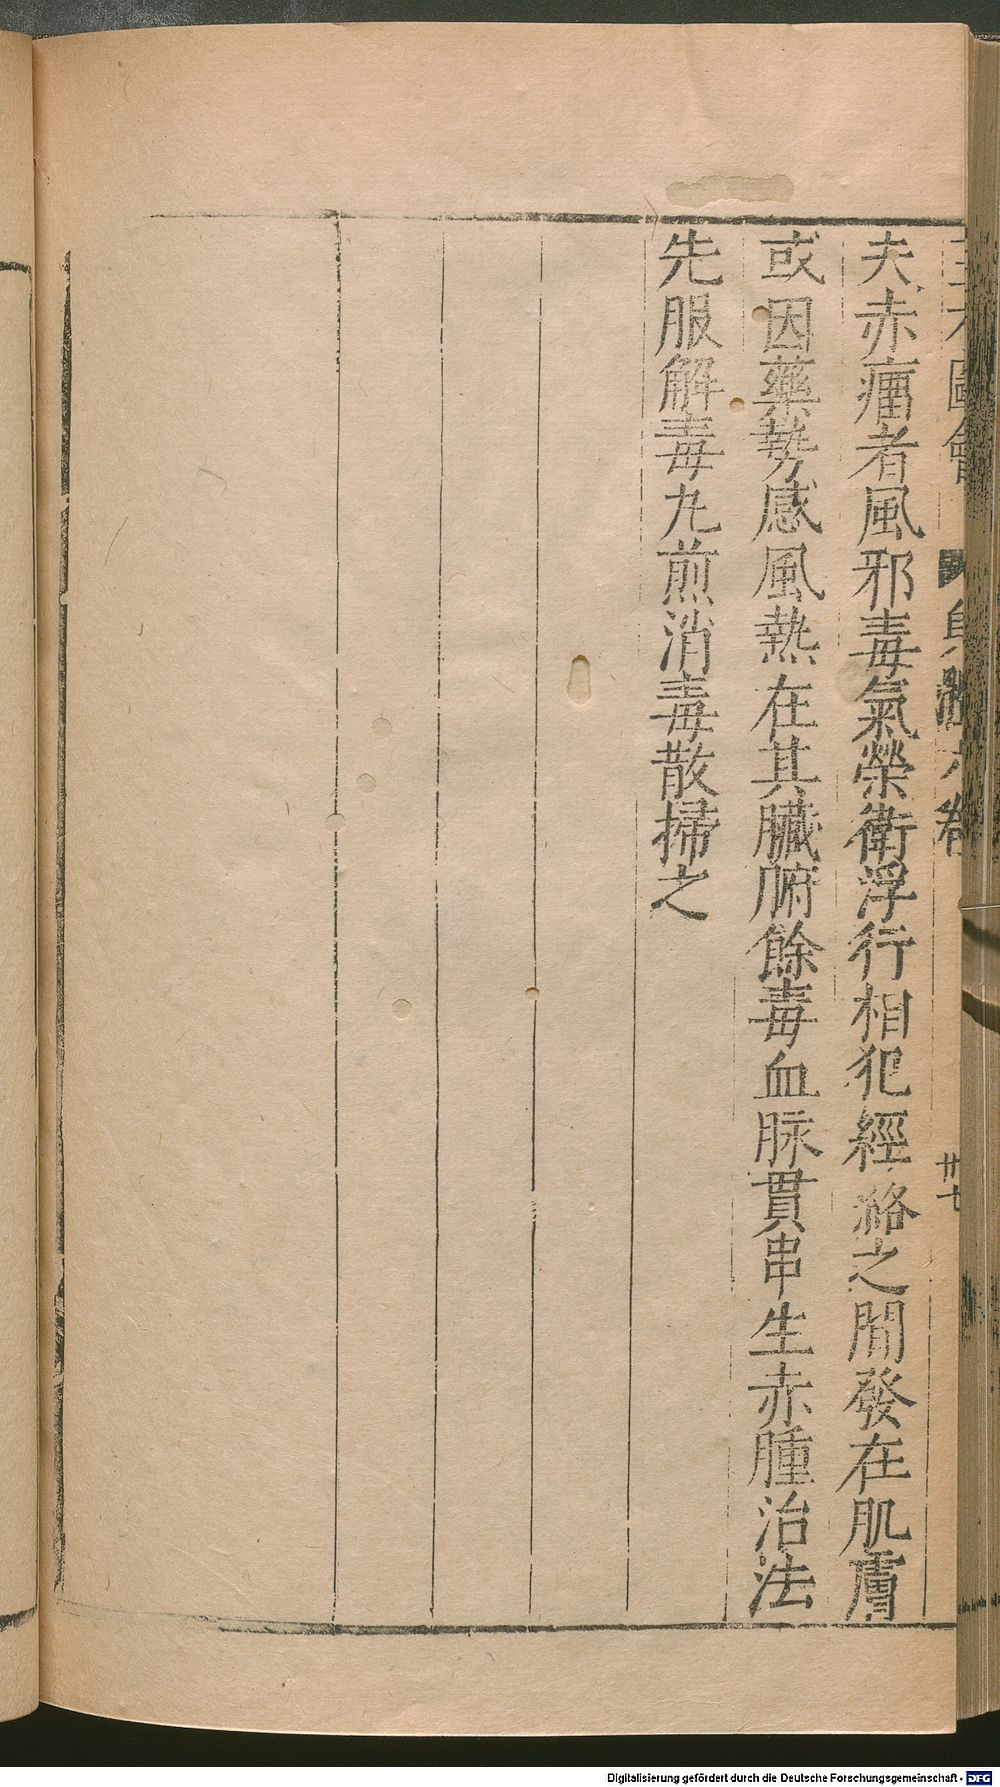 三才圖會 身體六卷 卅七
夫赤瘤者風邪毒氣榮衛浮行相犯經絡之間發在肌膚
或因藥勢感風熱在其臟腑餘毒血脉貫串生赤腫治法
先服解毒丸煎消毒散掃之
Digitalisierung gefördert durch die Deutsche Forschungsgemeinschaft - DFG